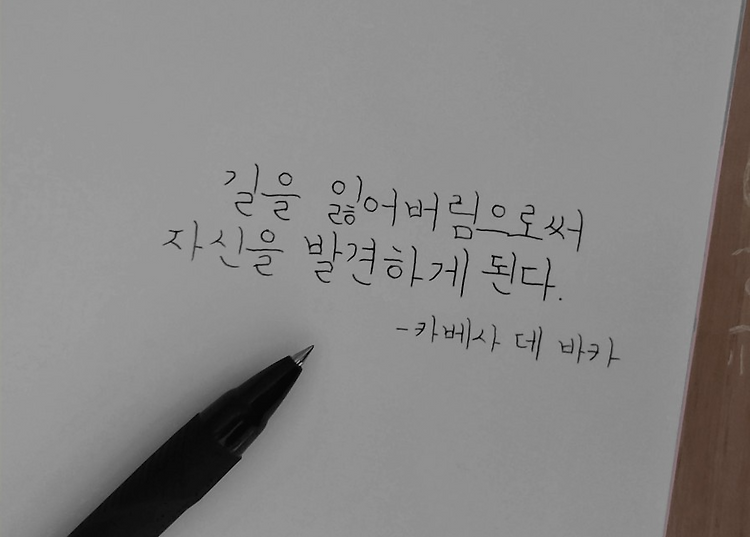 길을 잃어버림으로써
자신을 발견하게 된다.
-카베사 데 바카